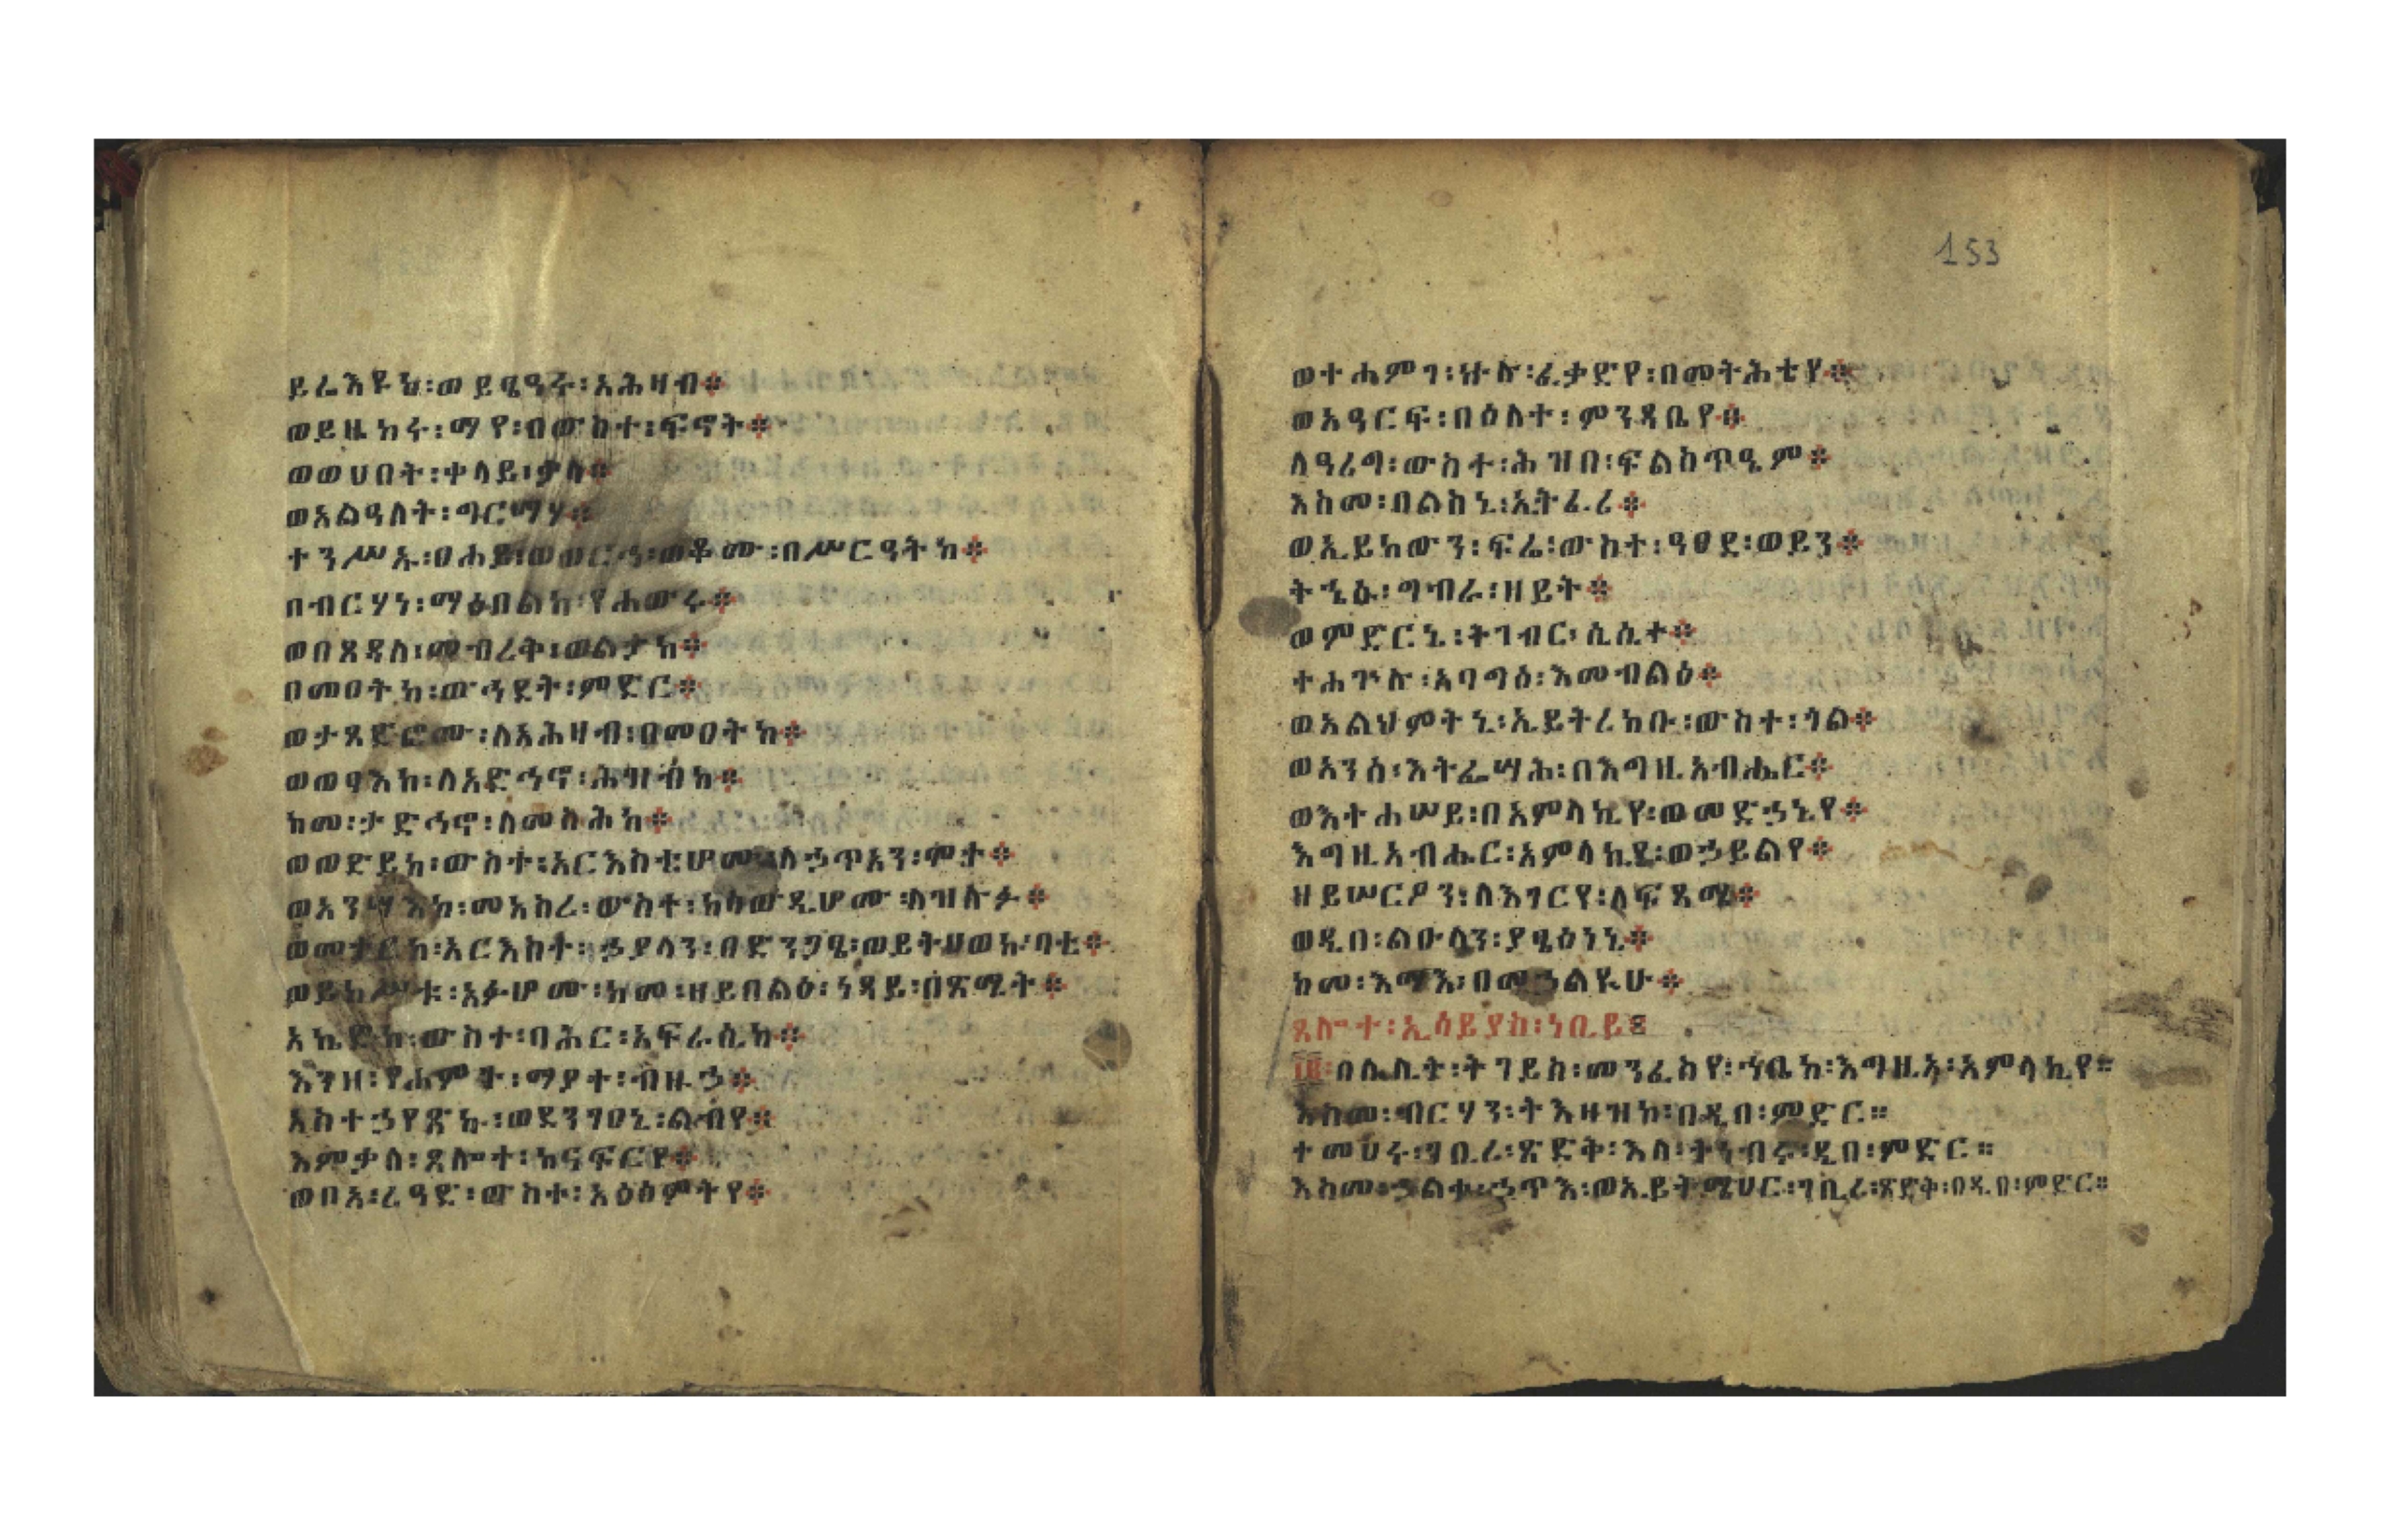 ይሬእዩከ፡ወይፄዓሩ፡አሕዛብ።
ወይዜከሩ፡ማየ፡በውስተ፡ፍኖት።
ወወሀበት፡ቀላይ፡ቃለ።
ወአልዓለት፡ግርማሃ።
ተንሥኡ፡ፀሐይ፡ወወርኅ፡ወቆሙ፡በሥርዓትከ።
በብርሃነ፡ማዕበልከ፡የሐውሩ።
ወበጸዳለ፡መብረቅ፡ወልታከ።
በመዐትከ፡ውኅደት፡ምድር።
ወታጸድፎሙ፡ለአሕዛብ፡በመዐትከ።
ወወፃእከ፡ለአድኅኖ፡ሕዝብከ።
ከመ፡ታድኅኖ፡ለመሲሕከ።
ወወድይከ፡ውስተ፡አርእስቲሆሙ፡ለኃጥአን፡ሞተ።
ወአንሣእከ፡መአስረ፡ውስተ፡ክሳውዲሆሙ፡ለዝሉፉ።
ወመተርከ፡አርእስተ፡ኃያላን፡በድንጋፄ፡ወይትሀወኩ፡ባቲ።
ወይከሥቱ፡አፉሆሙ፡ከመ፡ዘይበልዕ፡ነዳይ፡በጽሚት።
አኬድከ፡ውስተ፡ባሕር፡አፍራሲከ።
እንዘ፡የሐምት፡ማያተ፡ብዙኃ።
አስተኃየጽኩ፡ወደንገፀኒ፡ልብየ።
እምቃለ፡ጸሎተ፡ከናፍርየ።
ወበአ፡ረዓድ፡ውስተ፡አዕፅምትየ።
153
ወተሐምገ፡ኵሉ፡ፈቃድየ፡በመትሕቴየ።
ወአዓርፍ፡በዕለተ፡ምንዳቤየ።
ለዓሪግ፡ውስተ፡ሕዝበ፡ፍልስጥዔም።
እስመ፡በልስኒ፡ኢትፈሪ።
ወኢይከውን፡ፍሬ፡ውስተ፡ዓፀደ፡ወይን።
ትኄሱ፡ግብራ፡ዘይት።
ወምድርኒ፡ትገብር፡ሲሲተ።
ተሐጕሉ፡አባግዕ፡እመብልዕ።
ወአልህምትኒ፡ኢይትረከቡ፡ውስተ፡ጎል።
ወአንሰ፡እትፌሣሕ፡በእግዚአብሔር።
ወእተሐሠይ፡በአምላኪየ፡ወመድኃኒየ።
እግዚአብሔር፡አምላኪየ፡ወኃይልየ።
ዘይሠርዖን፡ለእገርየ፡ለፍጻሜ።
ወዲበ፡ልዑላን፡ያፄዕነኒ።
ከመ፡እማእ፡በመኃልዪሁ።
ጸሎተ፡ኢሳይያስ፡ነቢይ።
በሌሊት፡ትገይስ፡መንፈስየ፡ኀቤከ፡እግዚኦ፡አምላኪየ።
እስመ፡ብርሃን፡ትእዛዝከ፡በዲበ፡ምድር።
ተመሀሩ፡ገቢረ፡ጽድቅ፡እለ፡ትነብሩ፡ዲበ፡ምድር።
እስመ፡ኃልቀ፡ኃጥእ፡ወኢይትሜሀር፡ገቢረ፡ጽድቅ፡በዲበ፡ምድር።